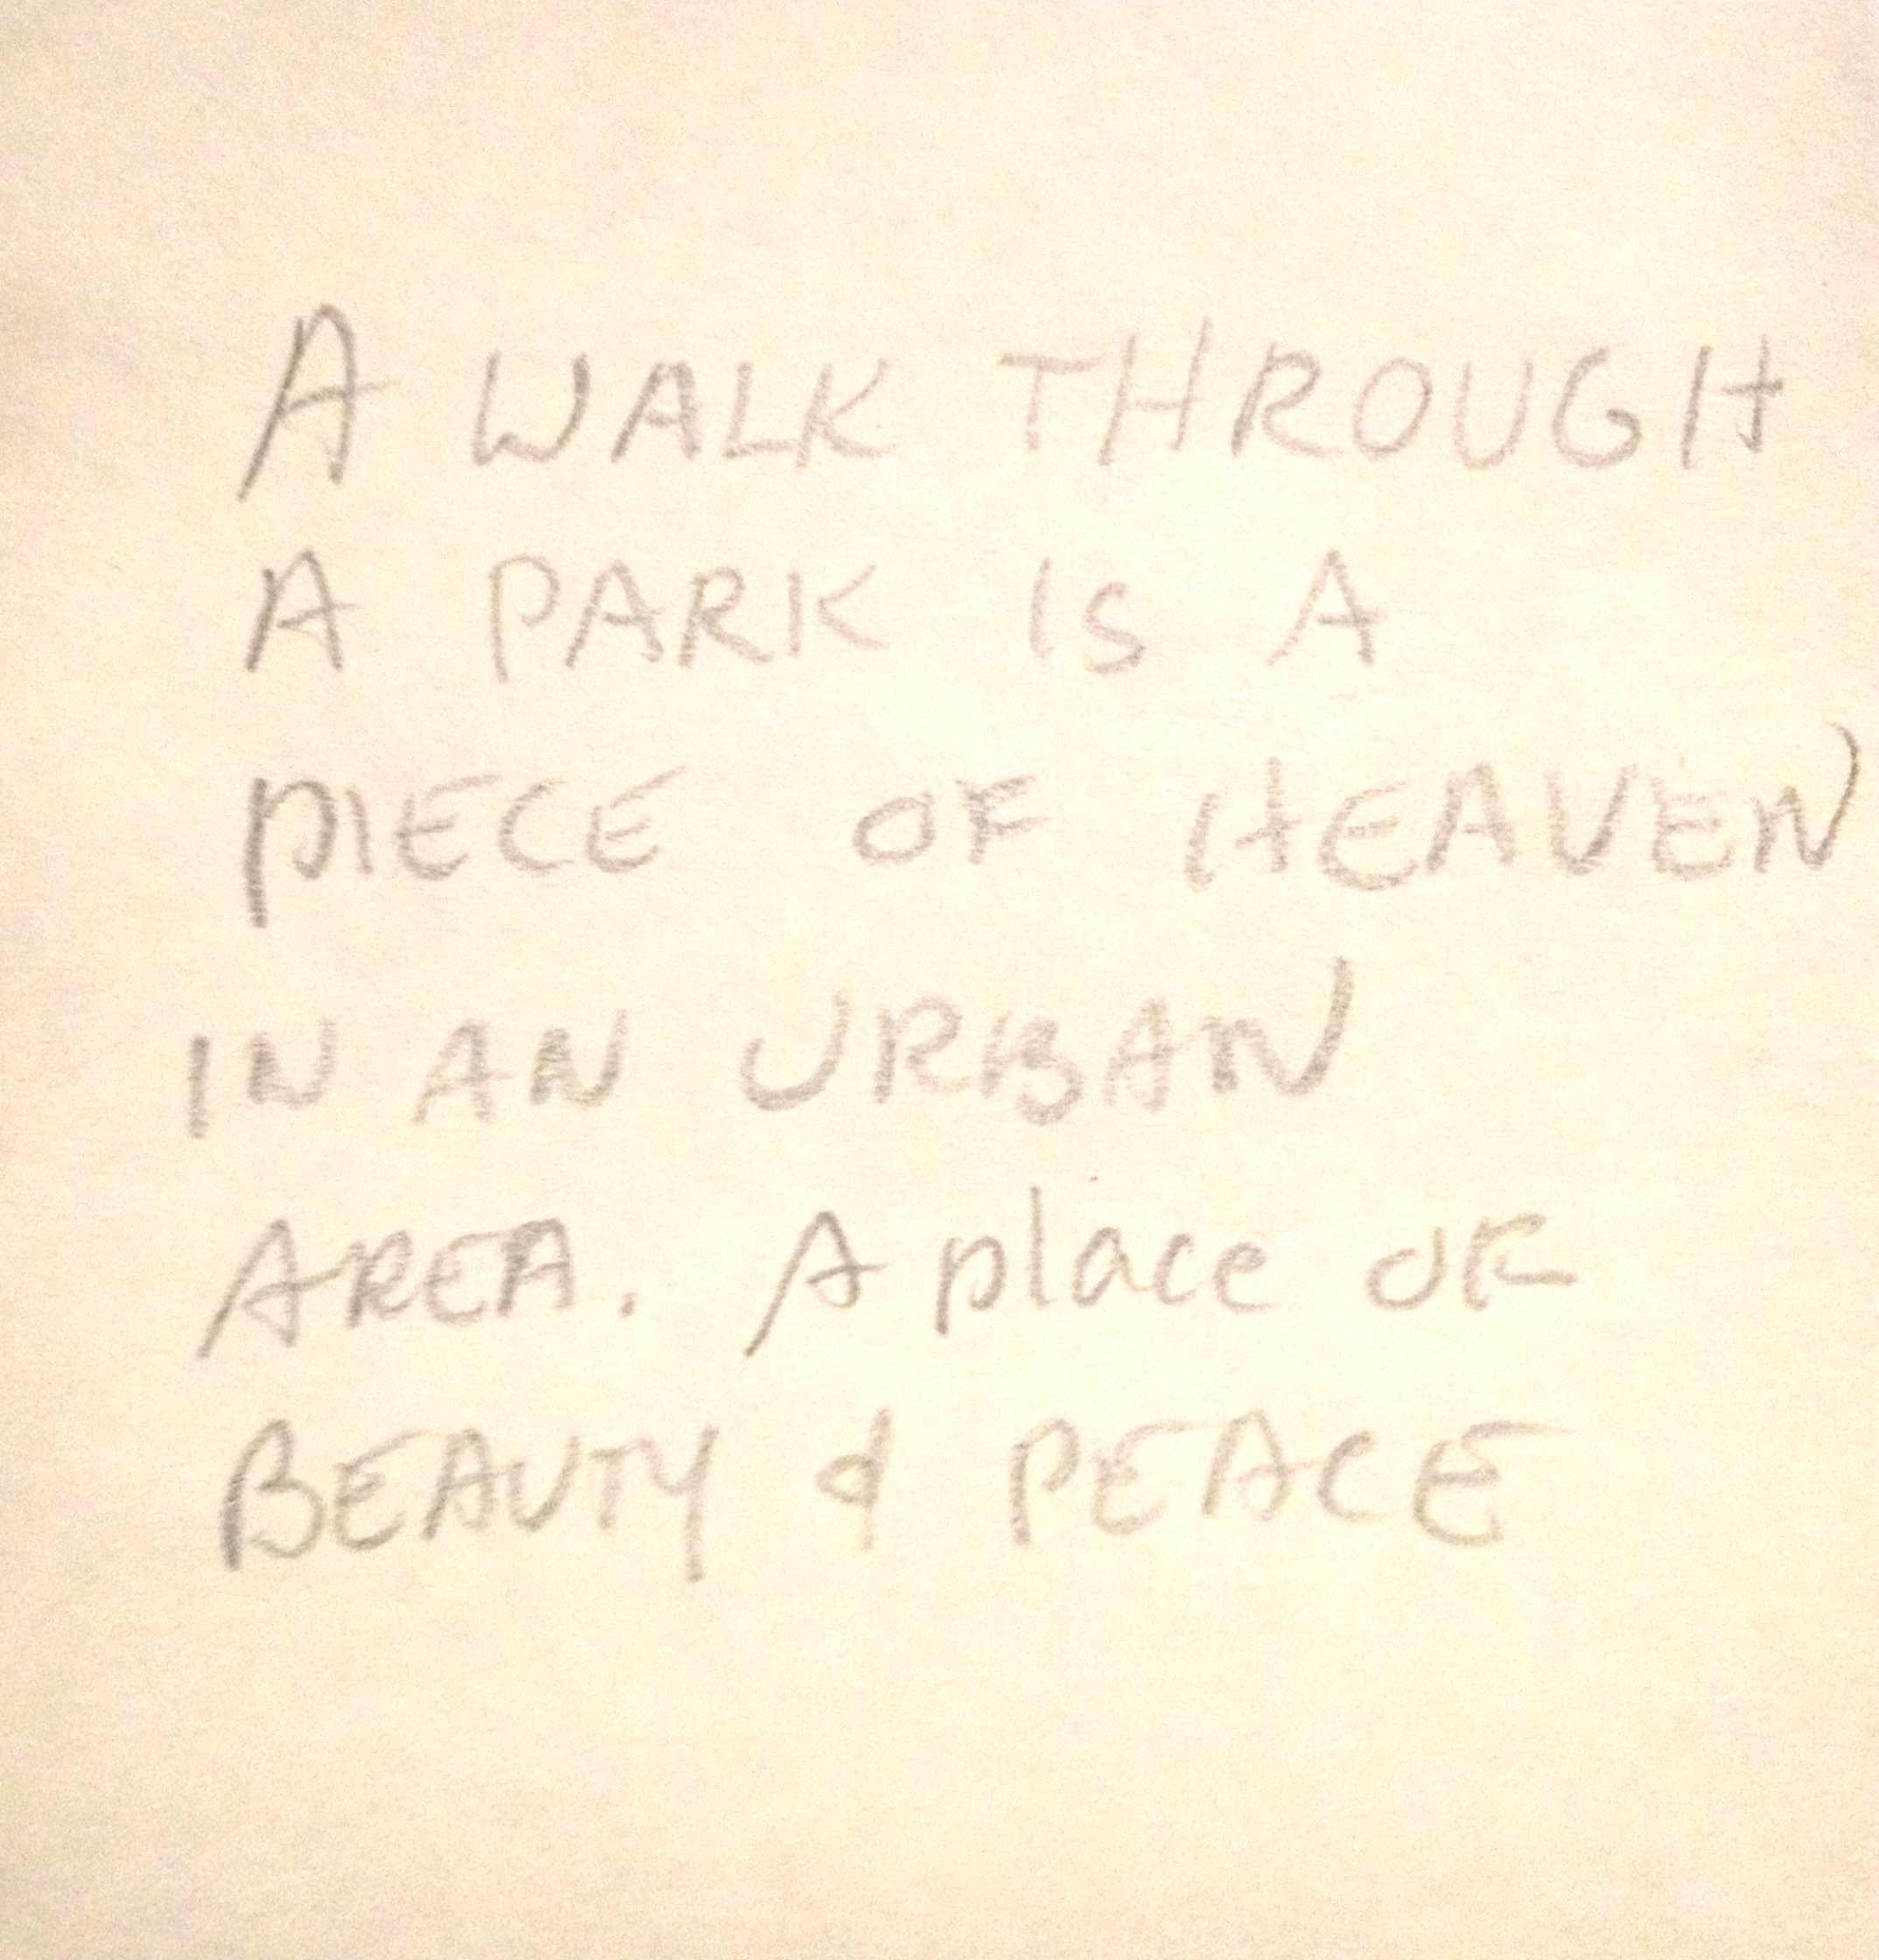 A WALK THROUGH
A PARK IS A
PIECE OF HEAVEN
IN AN URBAN
AREA. A place OF
BEAUTY & PEACE